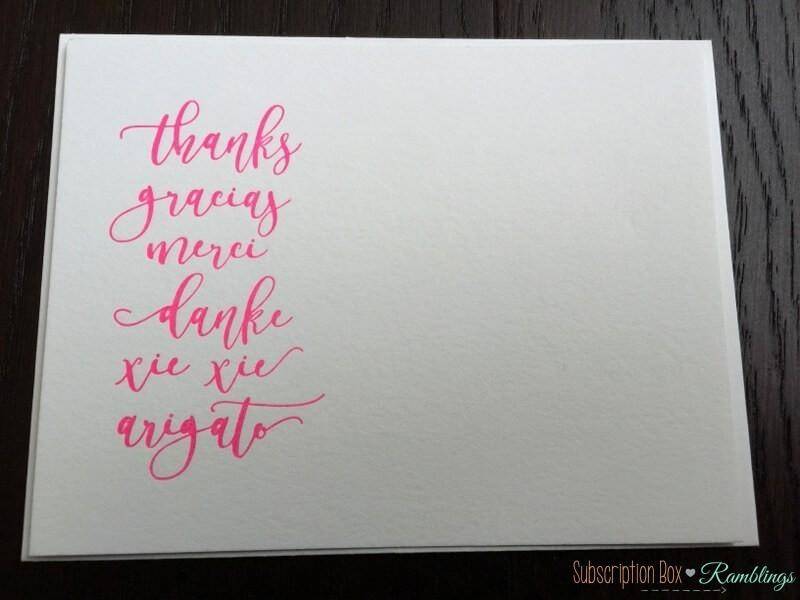 thanks
gracias
merci
danke
xie xie
arigato
Subscription Box ♥ Ramblings